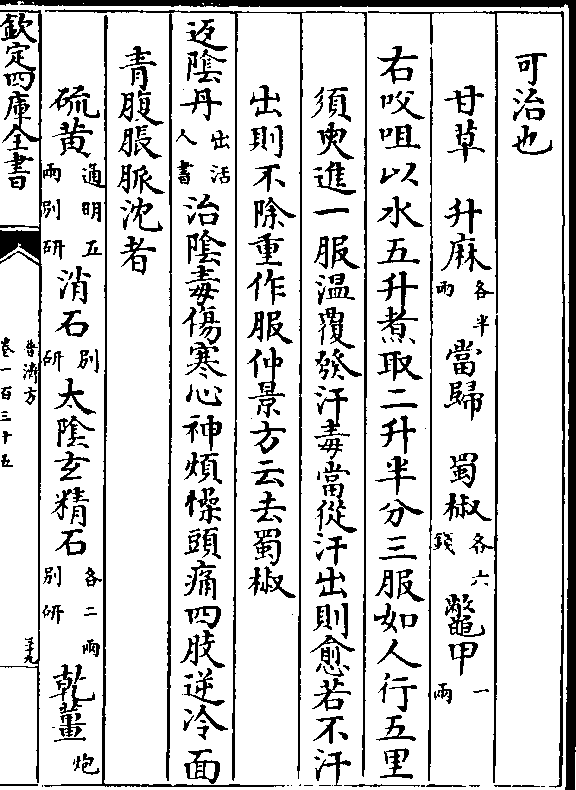 可治也
甘草 升麻各半兩 當歸 蜀椒各六錢 鼈甲一兩
右㕮咀以水五升煮取二升半分三服如人行五里
須臾進一服温覆發汗毒當從汗出則愈若不汗
出則不除重作服仲景方云去蜀椒
返陰丹出活人書治陰毒傷寒心神煩懆頭痛四肢逆冷面
青腹脹脈沈者
硫黄通明五兩別研 消石別研 太陰玄精石各二兩別研 乾薑炮
欽定四庫全書
普濟方
卷一百三十五